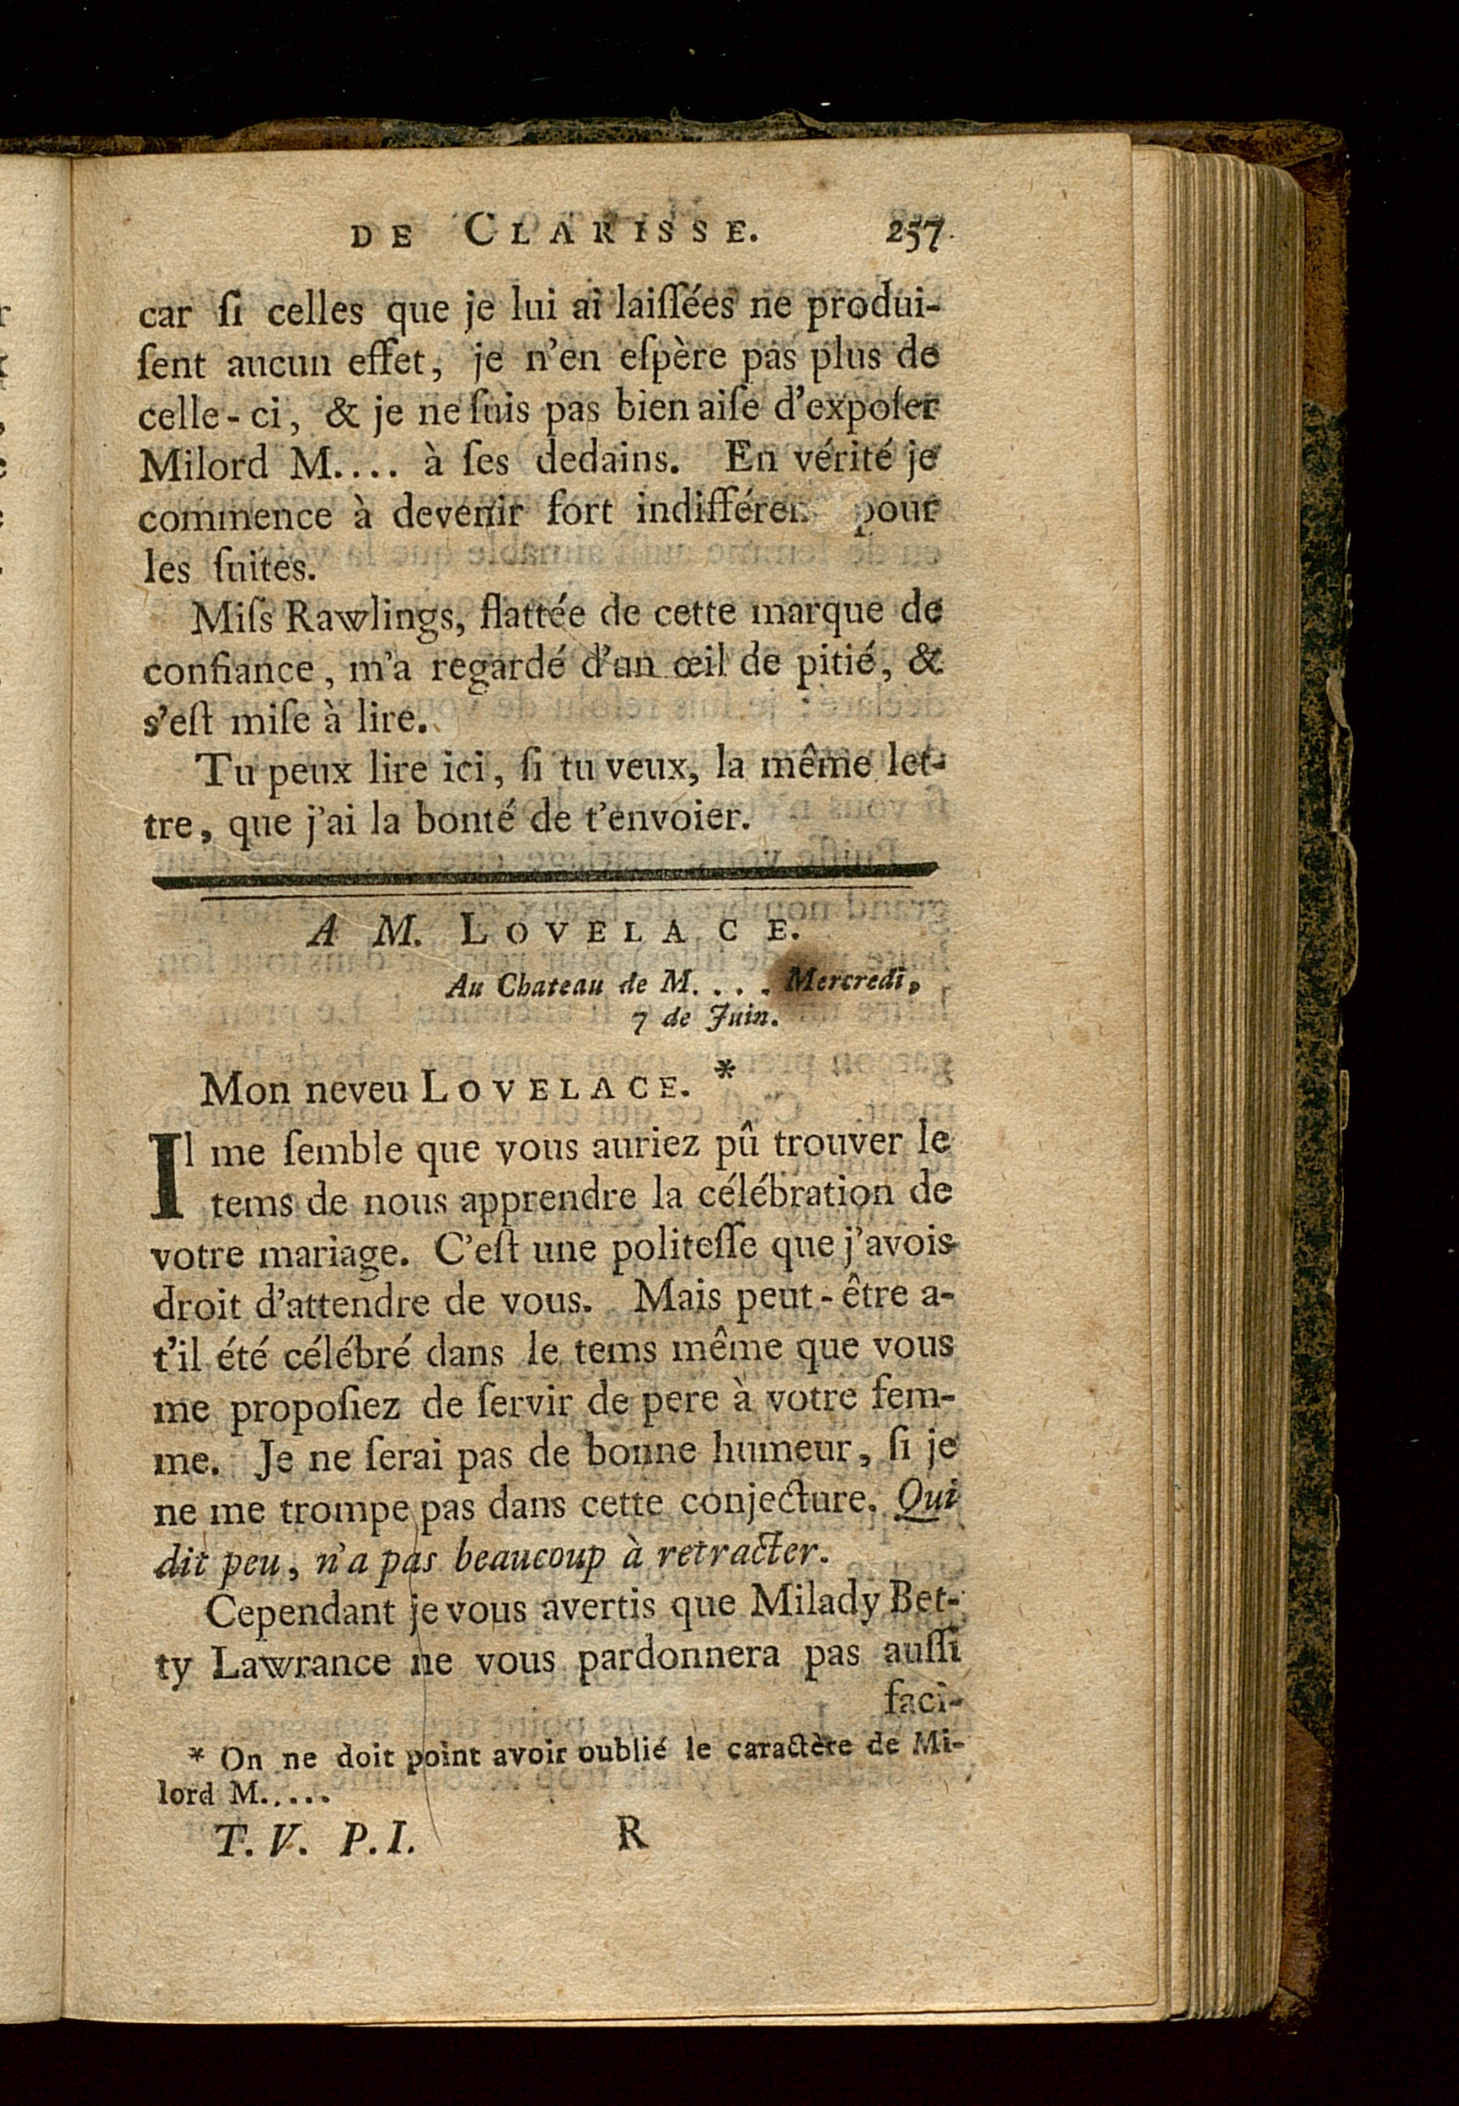 DE CLARISSE. 257
car ſi celles que je lui ai laiſſées ne produi-
ſent aucun effet, je n'en eſpère pas plus de
celle-ci, & je ne ſuis pas bien aiſe d'expoſer
Milord M.... à ſes dedains. En vérité je
commence à devenir fort indifféren pour
les ſuites.
Miſs Rawlings, flattée de cette marque de
confiance, m'a regardé d'un œil de pitié, &
s'eſt miſe à lire.
Tu peux lire ici, ſi tu veux, la même let-
tre, que j'ai la bonté de t'envoier.
A M. LOVELACE.
Au Chateau de M.... Mercredi,
7 de Juin.
Mon neveu LOVELACE. *
Il me ſemble que vous auriez pû trouver le
tems de nous apprendre la célébration de
votre mariage. C'eſt une politeſſe que j'avois
droit d'attendre de vous. Mais peut-être a-
t'il été célébré dans le tems même que vous
me propoſiez de ſervir de pere à votre fem-
me. Je ne ſerai pas de bonne humeur, ſi je
ne me trompe pas dans cette conjecture. Qui
dit peu, n'a pas beaucoup à retracter.
Cependant je vous avertis que Milady Bet-
ty Lawrance ne vous pardonnera pas auſſi
faci-
* On ne doit point avoir oublié le caractère de Mi-
lord M.....
T. V. P. I. R